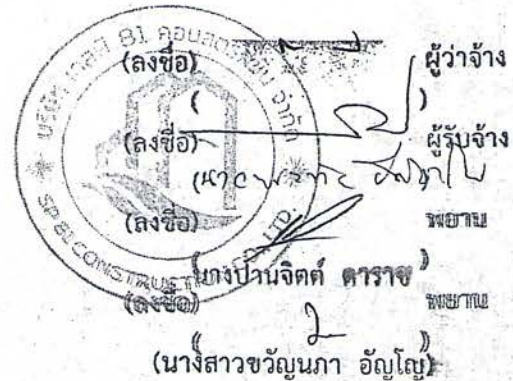 (ลงชื่อ) ผู้ว่าจ้าง
( )
(ลงชื่อ) ผู้รับจ้าง
(ลงชื่อ) พยาน
(นางปานจิตต์ ดาราช)
(ลงชื่อ) พยาน
(นางสาวขวัญนภา อัญโญ)
บริษัท เอสพี 81 คอนสตรัคชั่น จำกัด
SP 81 CONSTRUCTION CO.,LTD.